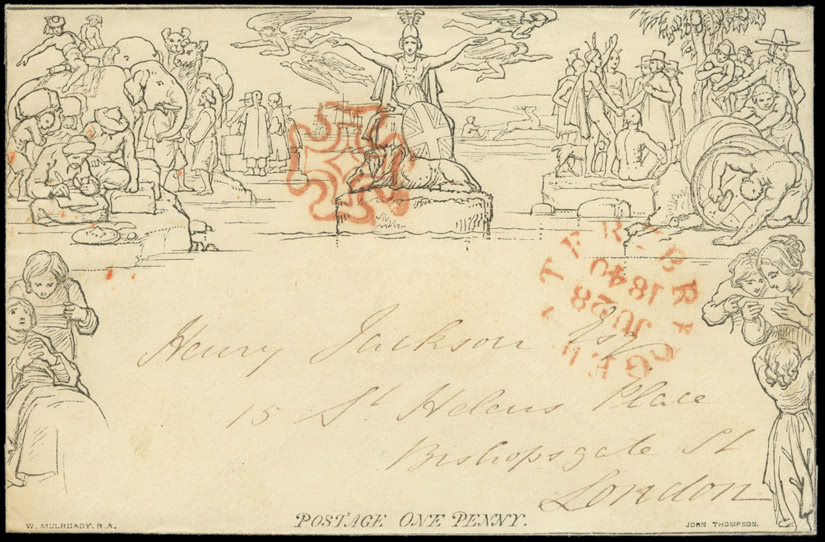 BRIDGEWATER
JU 28
1840
Henry Jackson Esq.
15 St Helens Place
Bishopsgate St
London
W. MULREADY. R.A.
POSTAGE ONE PENNY.
JOHN THOMPSON.